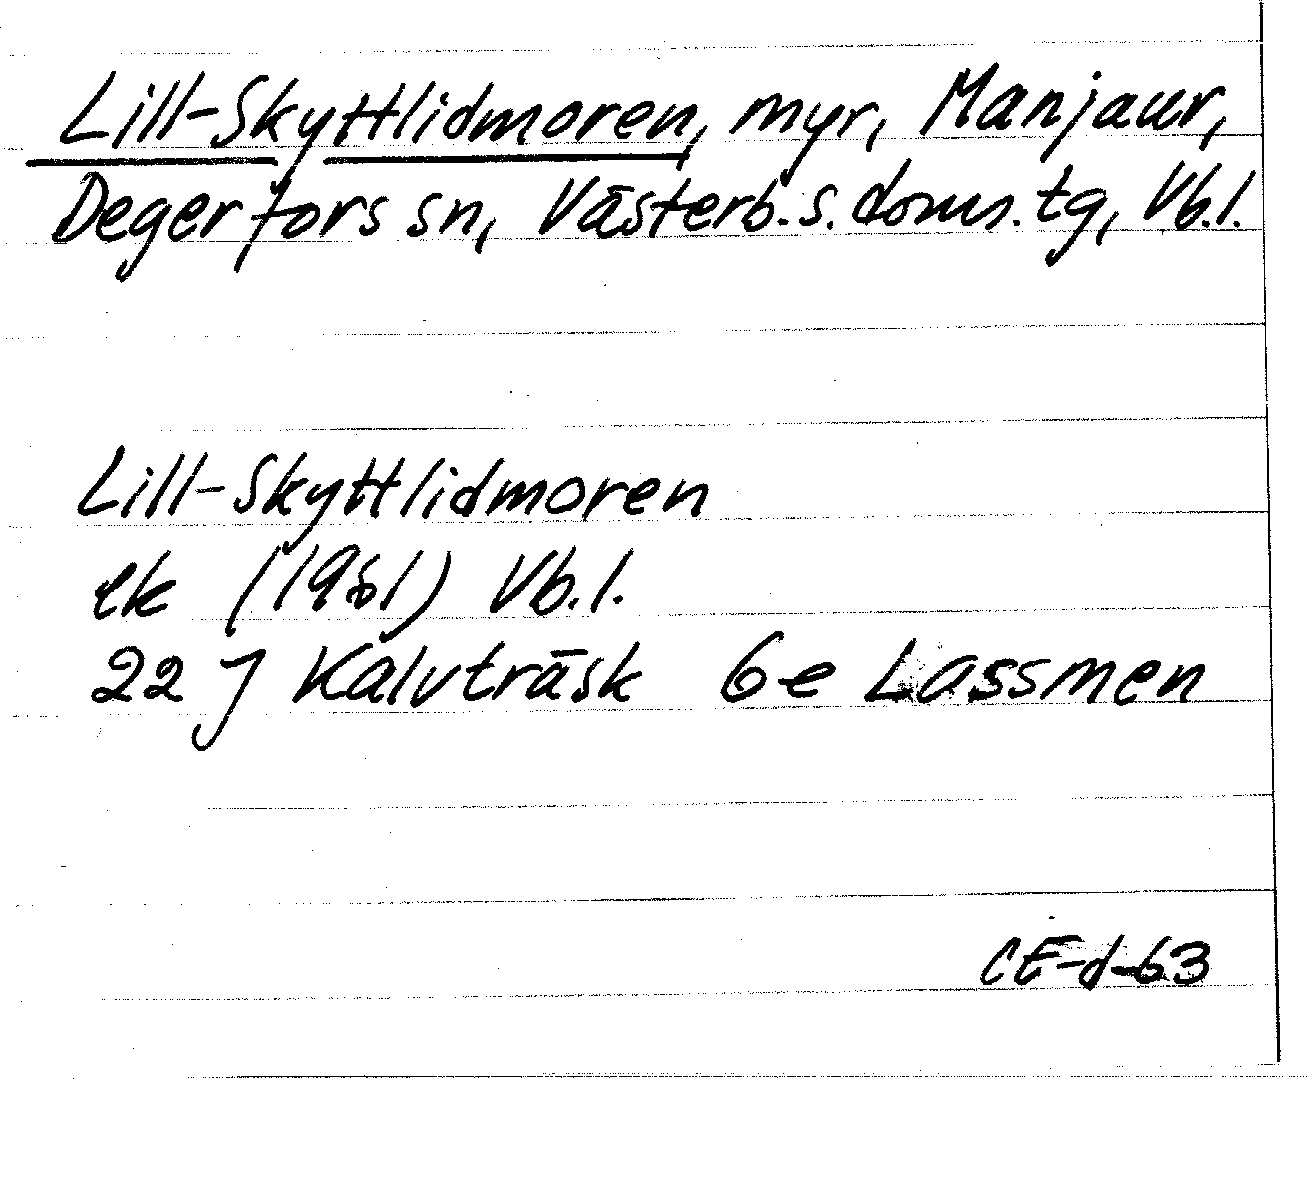 Lill-Skyttlidmoren, myr, Manjaur,
Degerfors sn, Västerb. s. doms. tg, Vb.l.
Lill-Skyttlidmoren
ek (1961) Vb.l.
22 J Kalvträsk 6e Lassmen
CE-d-63